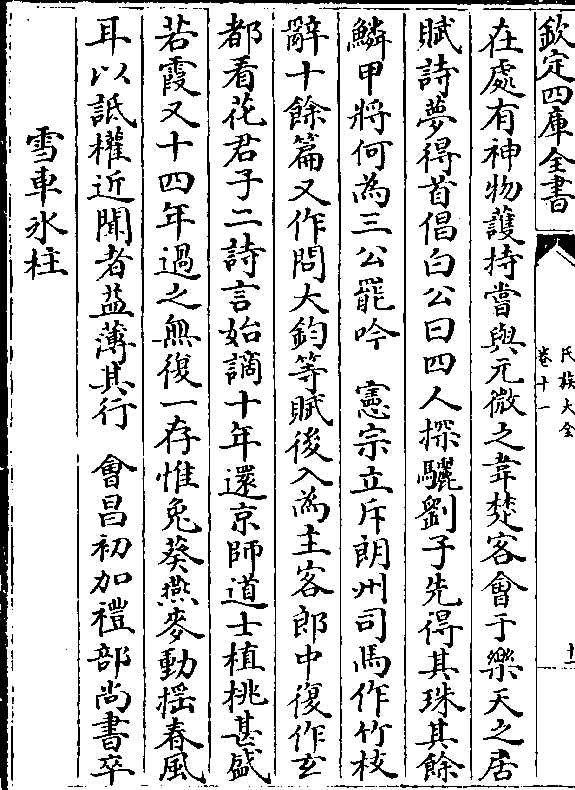 欽定四庫全書
氏族大全
卷十一
十一
在處有神物護持嘗與元微之韋楚客會于樂天之居
賦詩夢得首倡白公曰四人探驪劉子先得其珠其餘
鱗甲將何為三公罷吟　憲宗立斥朗州司馬作竹枝
辭十餘篇又作問大鈞等賦後入為主客郎中復作玄
都看花君子二詩言始謫十年還京師道士植桃甚盛
若霞又十四年過之無復一存惟兔葵燕麥動揺春風
耳以詆權近聞者益薄其行　會昌初加禮部尚書卒
雪車氷柱